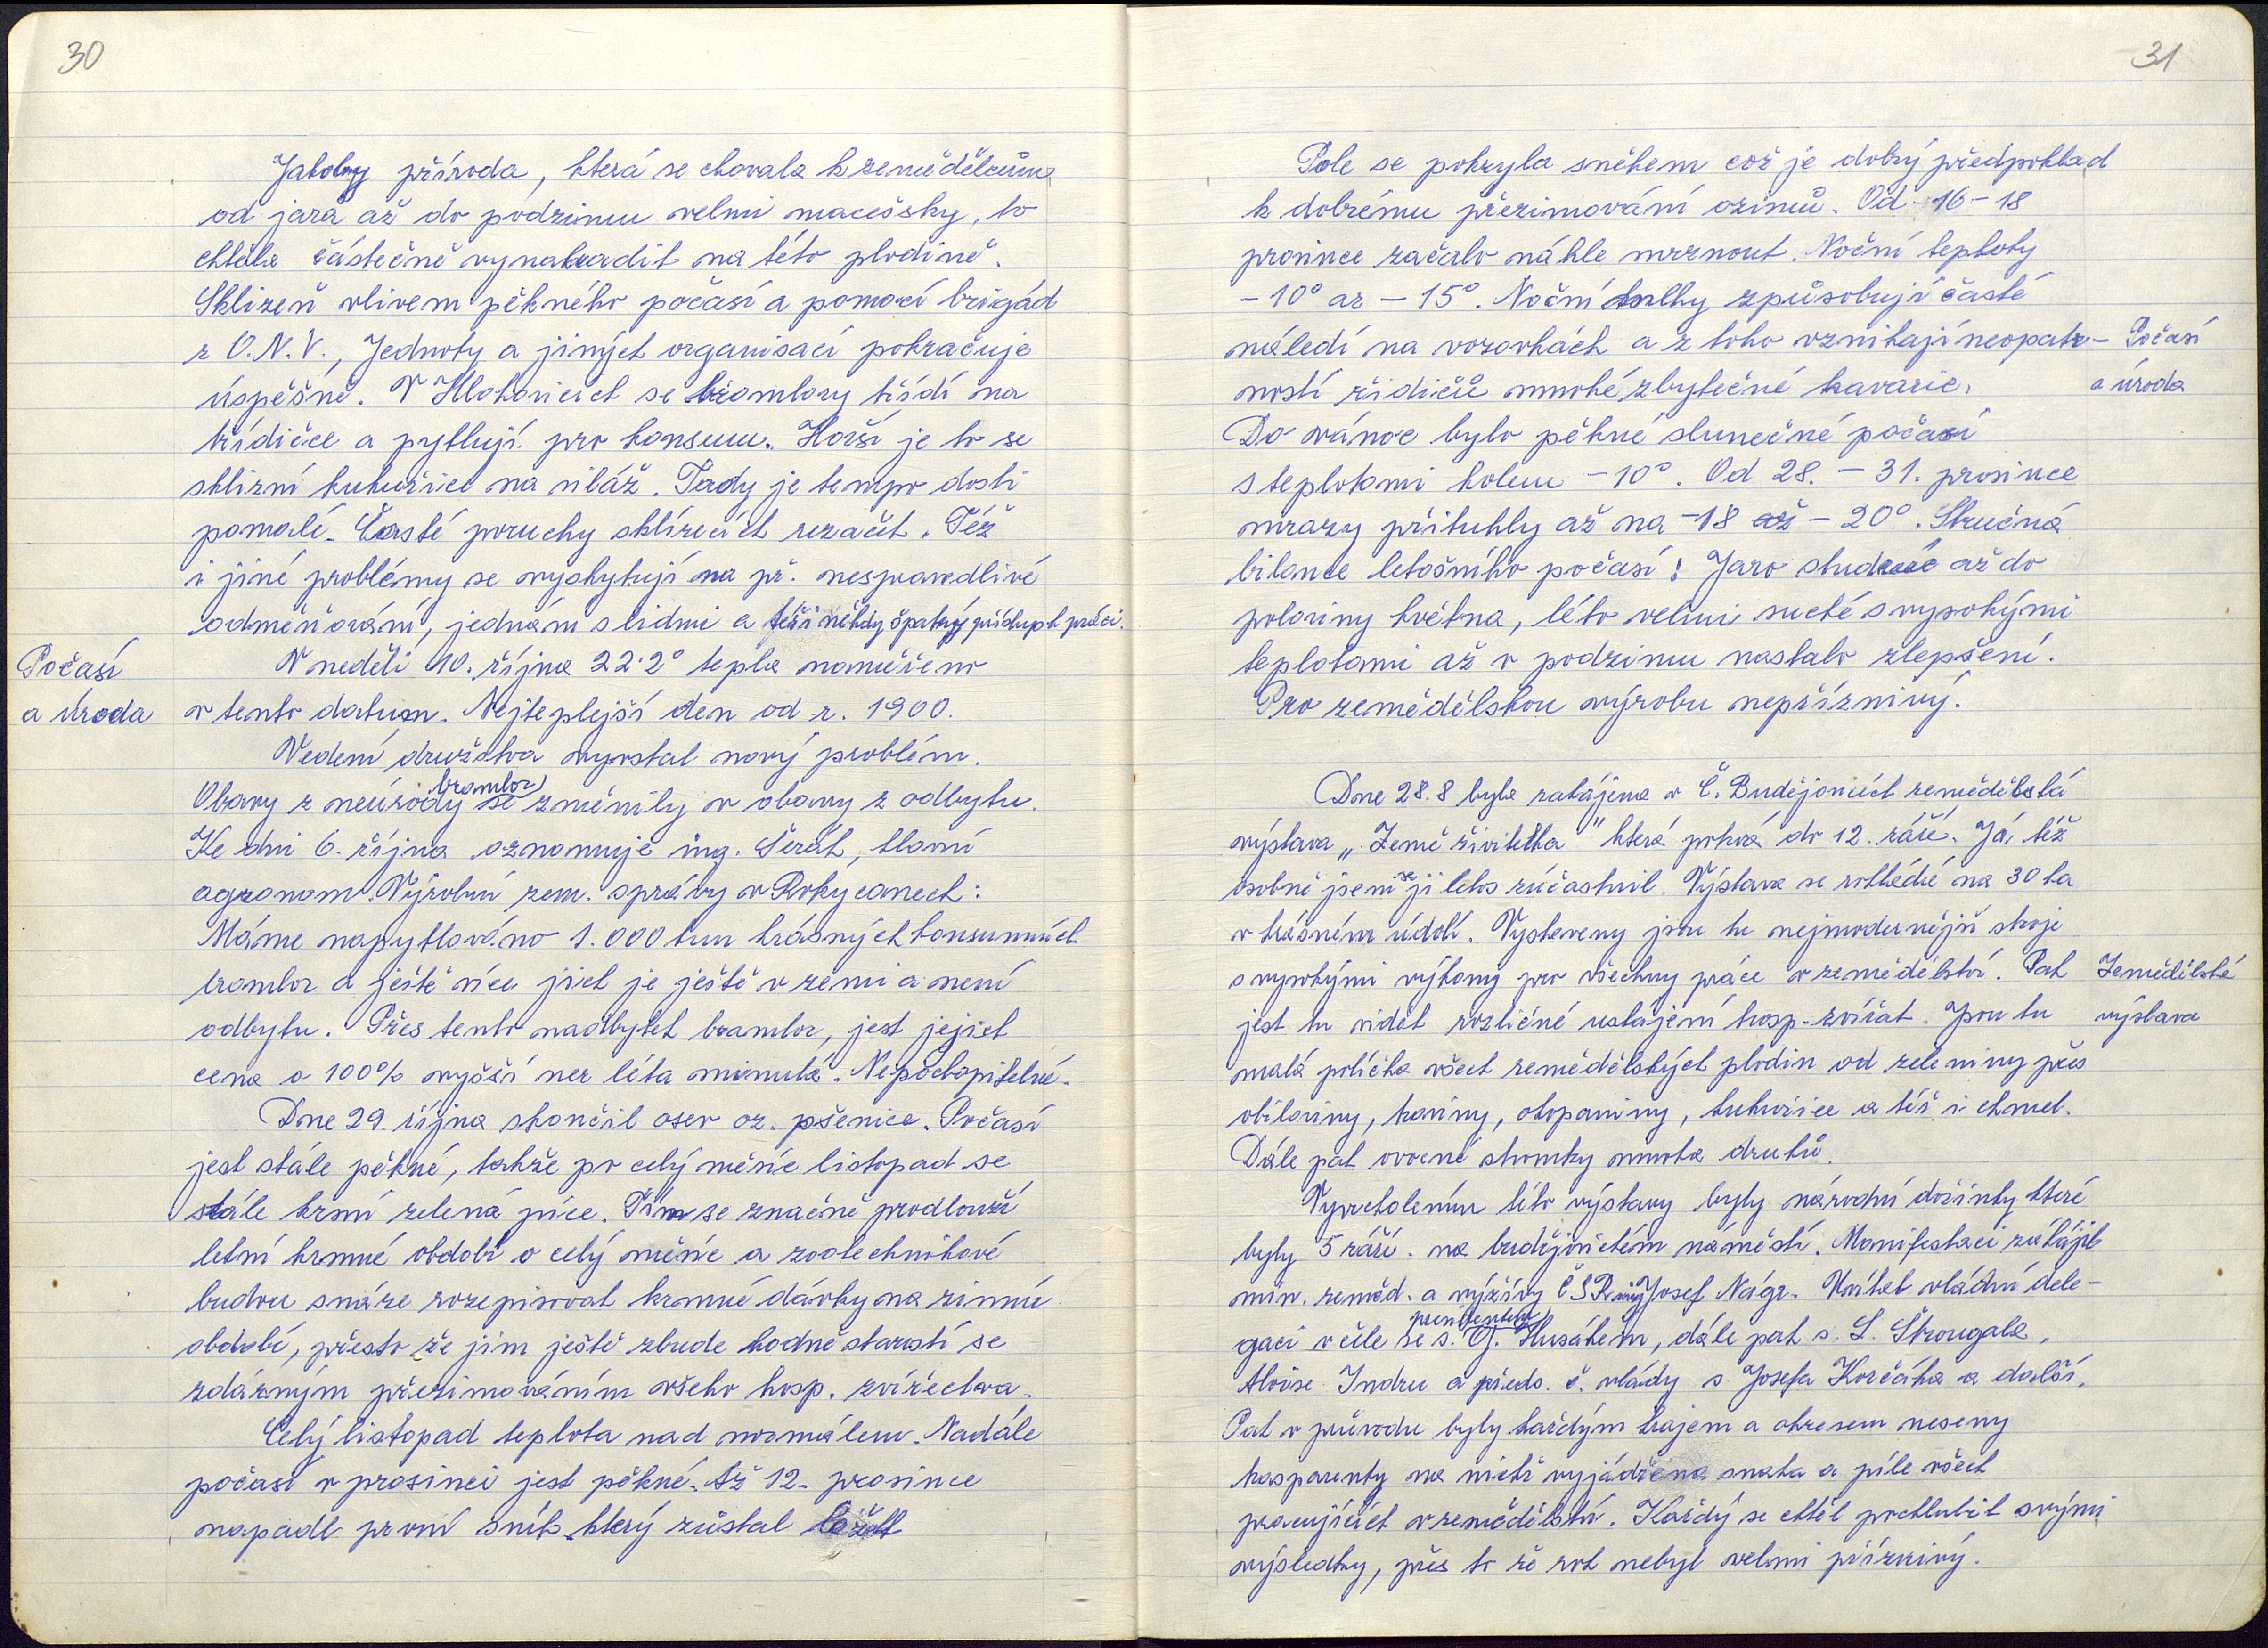 30
Jakoby příroda, která se chovala k zemědělcům
od jara až do podzimu velmi macešsky, to
chtěla částečně vynahradit na této plodině.
Sklizeň vlivem pěkného počasí a pomocí brigád
z O.N.V., Jednoty a jiných organisací pokračuje
úspěšně. V Hlohovicích se brambory třídí na
třídičce a pytlují pro konsum. Horší je to se
sklizní kukuřice na siláž. Tady je tempo dosti
pomalé. Časté poruchy sklízecích rezaček. Též
i jiné problémy se vyskytují na př. nespravedlivé
odměňování, jednání s lidmi a též i někdy špatný přístup k práci.
Počasí
a úroda
V neděli 10. října 22.2° tepla naměřeno
v tento datum. Nejteplejší den od r. 1900.
Vedení družstva vyvstal nový problém.
Obavy z neúrody brambor se změnily v obavy z odbytu.
Ke dni 6. října oznamuje ing. Šerák, hlavní
agronom Výrobní zem. správy v Rokycanech:
Máme napytlováno 1.000 tun krásných konsumních
brambor a ještě více jich je ještě v zemi a není
odbytu. Přes tento nadbytek brambor, jest jejich
cena o 100% vyšší nez léta minulá. Nepochopitelné.
Dne 29. října skončil osev oz. pšenice. Počasí
jest stále pěkné, takže po celý měsíc listopad se
stále krmí zelená píce. Tím se značně prodlouží
letní krmné období o celý měsíc a zootechnikové
budou snáze rozepisovat krmné dávky na zimní
období, přesto že jim ještě zbude hodně starostí se
zdárným přezimováním všeho hosp. zvířectva.
Celý listopad teplota nad normálem. Nadále
počasí v prosinci jest pěkné. Až 12. prosince
napadl první sníh, který zůstal ležet
31
Pole se pokryla sněhem což je dobrý předpoklad
k dobrému přezimování ozimů. Od 16 – 18
prosince začalo náhle mrznout. Noční teploty
– 10° az – 15°. Noční mlhy způsobují časté
náledí na vozovkách a z toho vznikají neopatr-
ností řidičů mnohé zbytečné havarie.
Počasí
a úroda
Do vánoc bylo pěkné slunečné počasí
s teplotami kolem –10°. Od 28. – 31. prosince
mrazy přituhly až na –18 až – 20°. Stručná
bilance letošního počasí: Jaro studené až do
poloviny května, léto velmi suché s vysokými
teplotami až v podzimu nastalo zlepšení.
Pro zemědělskou výrobu nepříznivý.
Dne 28.8 byla zahájena v Č. Budějovicích zemědělská
výstava „Země živitelka" která potrvá do 12. září. Já, též
osobně jsem se jí letos zúčastnil. Výstava se rozkládá na 30 ha
v krásném údolí. Vystaveny jsou tu nejmodernější stroje
s vysokými výkony pro všechny práce v zemědělství. Pak
jest tu vidět rozličné ustájení hosp. zvířat. Jsou tu
Zemědělská
výstava
malá políčka všech zemědělských plodin od zeleniny přes
obiloviny, kaviny, okopaniny, kukuřice a též i chmel.
Dále pak ovocné stromky mnoha druhů.
Vyvrcholením této výstavy byly národní dožínky které
byly 5 září. na budějovickém náměstí. Manifestaci zahájil
min. zeměd. a výživy ČSR ing Josef Nágr. Uvítal vládní dele-
gaci v čele se s. presidentem G. Husákem, dále pak s. L. Štrougala,
Aloise Indru a předs. č. vlády s Josefa Korčáka a další.
Pak v průvodu byly každým krajem a okresem neseny
trasparenty na nichž vyjádřena snaha a píle všech
pracujících v zemědělství. Každý se chtěl pochlubit svými
výsledky, přes to že rok nebyl velmi příznivý.